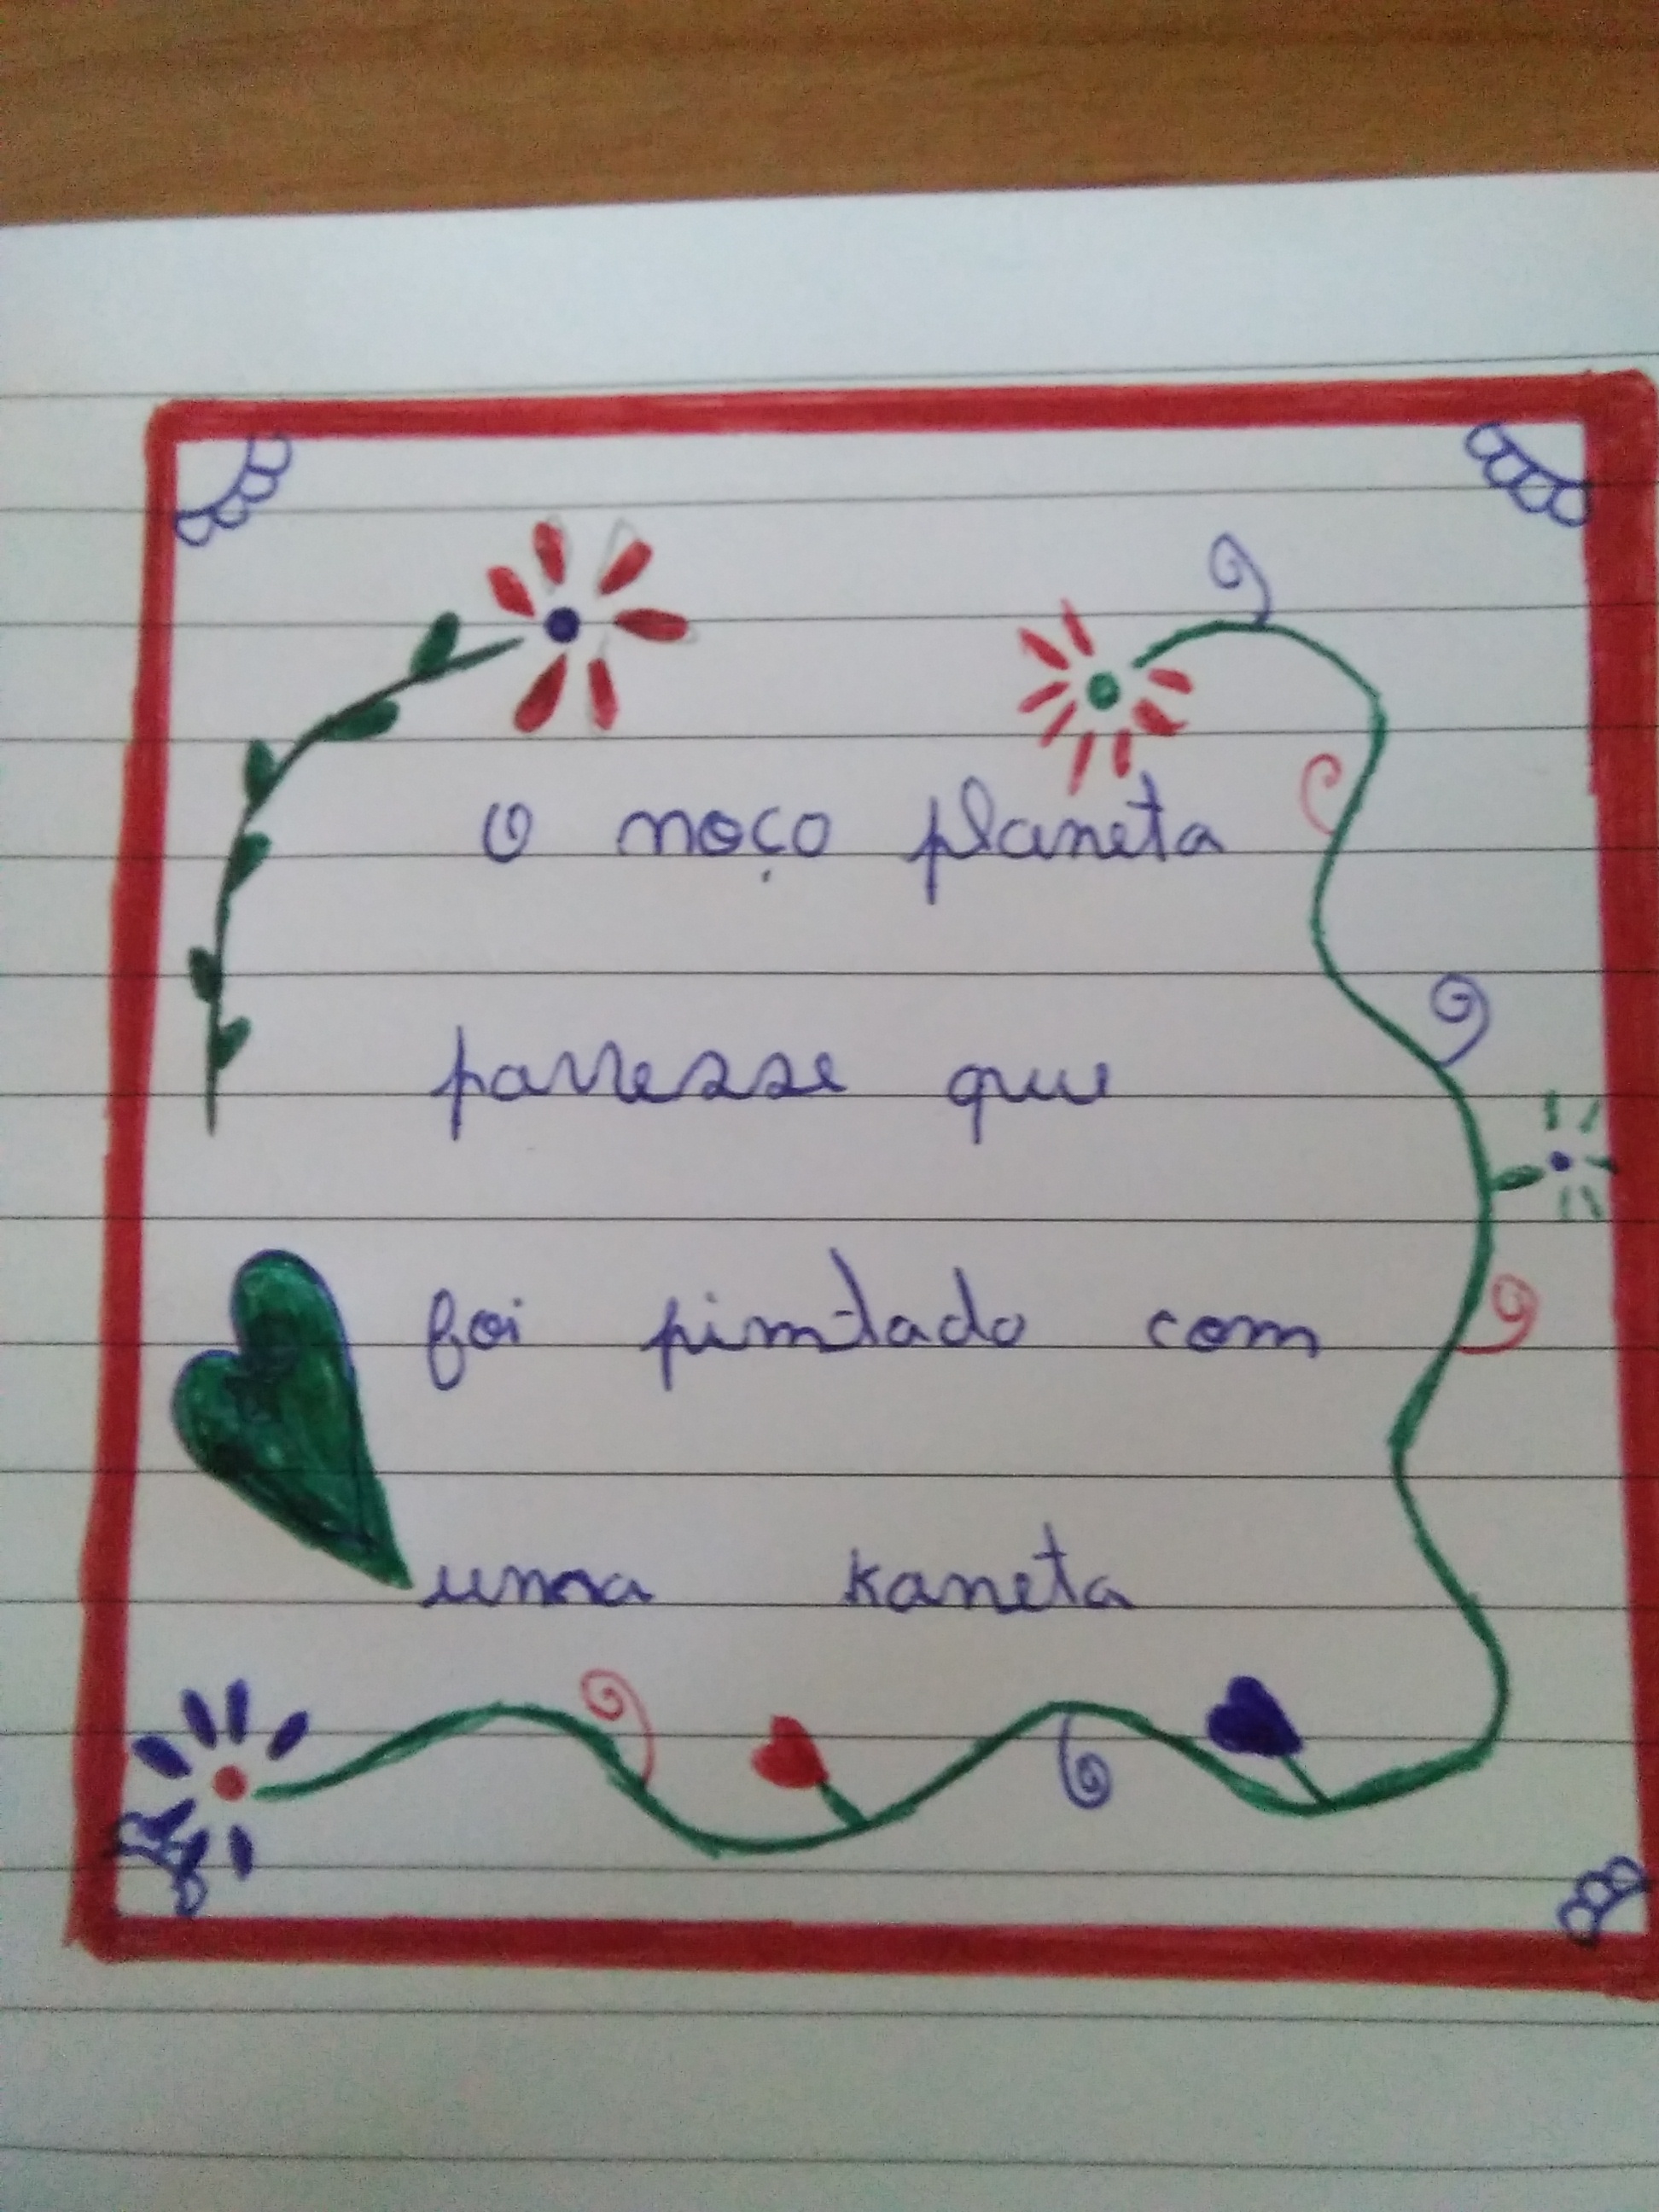 O noço planeta
parresse que
foi pimtado com
uma kaneta